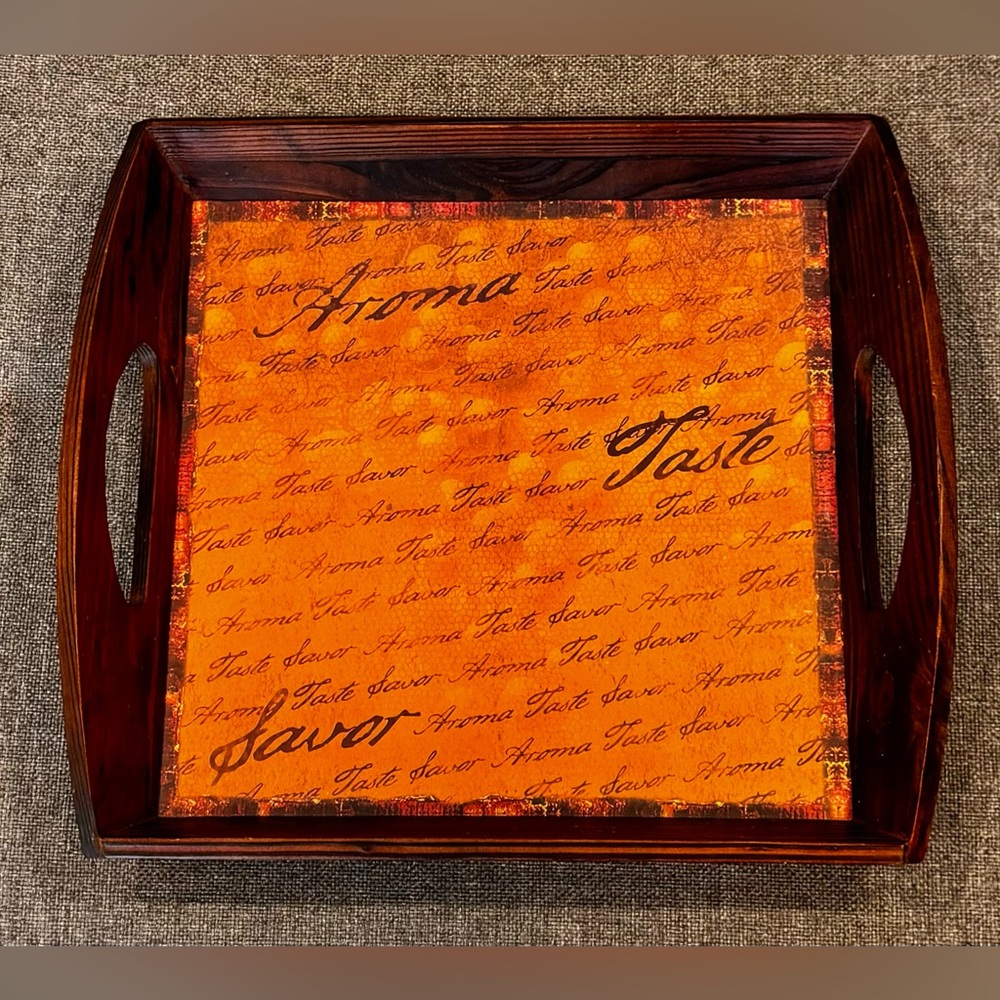 Aroma Taste Savor
Taste Savor Aroma Taste Savor Aroma
Aroma
Taste Savor Aroma
Savor Aroma Taste Savor Aroma
Taste Savor Aroma Taste Savor
Taste Savor Aroma Taste Savor Aroma Taste Savor
Savor Aroma Taste Savor Aroma Taste Savor
Aroma Taste Savor Aroma Taste Savor Aroma
Taste
Taste Savor Aroma Taste Savor Aroma Taste Savor
Savor Aroma Taste Savor Aroma Taste Savor Aroma
Aroma Taste Savor Aroma Taste Savor Aroma Taste
Taste Savor Aroma Taste Savor Aroma Taste Savor Aroma
Aroma Taste Savor Aroma Taste Savor Aroma Taste
Savor
Aroma Taste Savor Aroma
Aroma Taste Savor Aroma Taste Savor Aroma